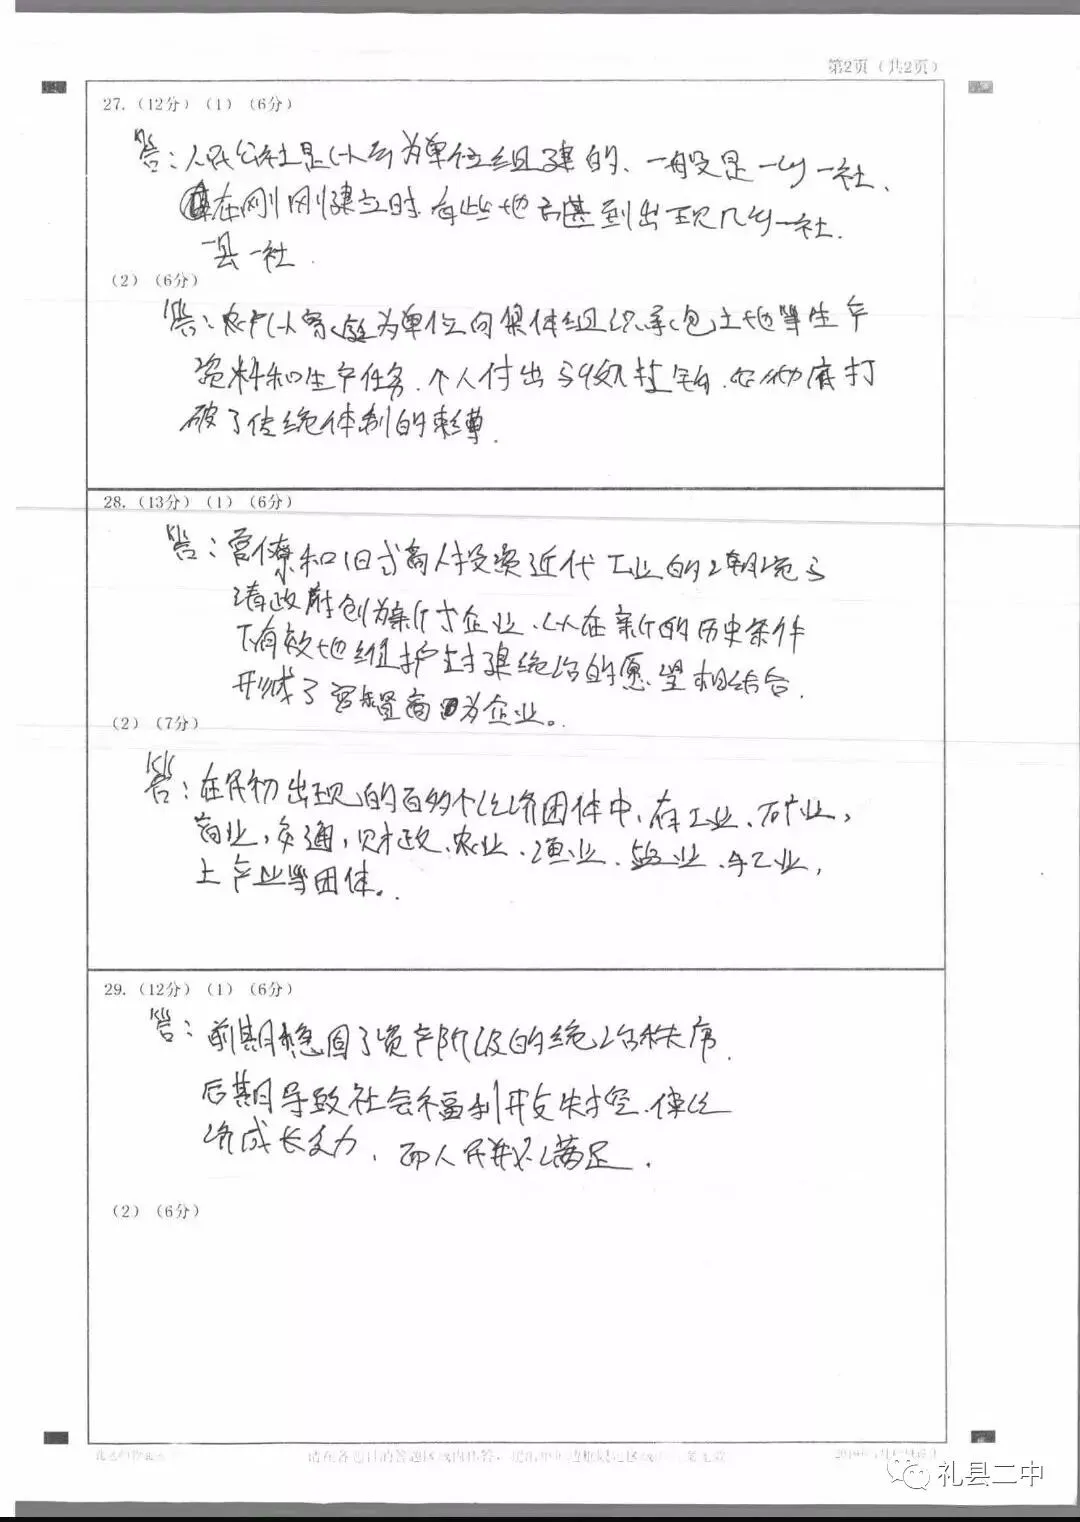 第2页（共2页）
27.（12分）（1）（6分）
答：人民公社是以乡为单位组建的、一般是一乡一社、
在刚刚建立时.有些地方甚至到出现几乡一社.
一县一社.
（2）（6分）
答：农户以家庭为单位向集体组织承包土地等生产
资料和生产任务.个人付出与收入挂钩.彻底打
破了传统体制的束缚.
28.（13分）（1）（6分）
答：官僚和旧式商人投资近代工业的期望与
清政府创办新式企业.以在新的历史条件
下有效地维护封建统治的愿望相结合.
形成了官督商办企业。
（2）（7分）
答：在民初出现的百多个经济团体中、有工业、矿业，
商业，交通，财政、农业、渔业、盐业、手工业，
土产业等团体。
29.（12分）（1）（6分）
答：前期稳固了资产阶级的统治秩序.
后期导致社会福利开支失控.使经
济成长乏力，而人民并不满足.
（2）（6分）
礼县二中